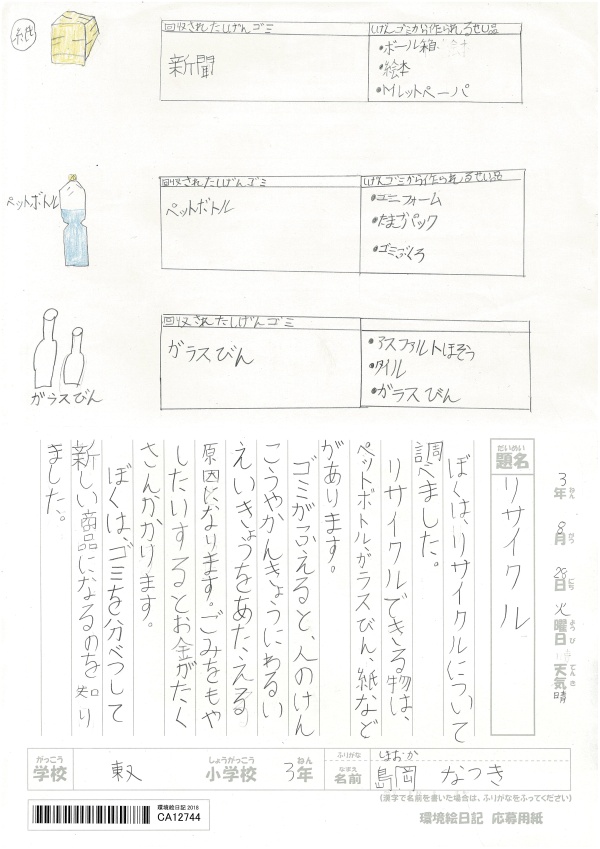 紙
回収されたしげんゴミ
しげんゴミから作られるせい品
新聞
●ボール箱
●絵本
●Mレットペーパ
ペットボトル
回収されたしげんゴミ
しげんゴミから作られるせい品
ペットボトル
●ユニフォーム
●たまごパック
●ゴミぶくろ
ガラスびん
回収されたしげんゴミ
ガラスびん
●アスファルトほそう
●タイル
●ガラスびん
3年 8月 28日 火曜日 天気 晴
ねん がつ にち ようび てんき
だいめい
題名
リサイクル
ぼくは、リサイクルについて
調べました。
リサイクルできる物は、
ペットボトル、ガラスびん、紙など
があります。
ゴミがふえると、人のけん
こうやかんきょうにわるい
えいきょうをあたえる
原因になります。ごみをもや
したいするとお金がたく
さんかかります。
ぼくは、ゴミを分べつして
新しい商品になるのを知り
ました。
がっこう しょうがっこう ねん ふりがな しまおか
学校 東 小学校 3年 なまえ 名前 島岡 なつき
(漢字で名前を書いた場合は、ふりがなをふってください)
環境絵日記 2018
CA12744
環境絵日記 応募用紙